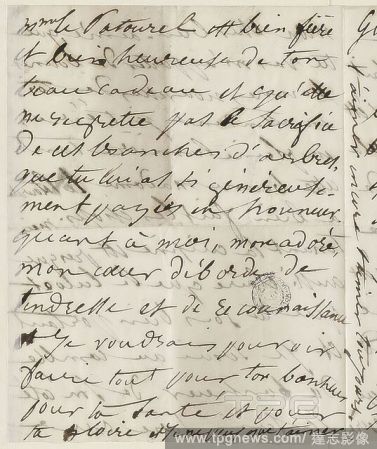 Mme le Patourel est bien fière
et bien heureuse de ton
beau cadeau et qu'elle
ne regrette pas le sacrifice
de ces branches d'arbres
que tu lui as si généreuse-
ment payées en honneur
quant à moi, mon adoré,
mon cœur déborde de
tendresse et de reconnaissance
Je voudrais pouvoir
faire tout pour ton bonheur
pour ta santé et pour
ta gloire
www.tpgnews.com / 達志影像